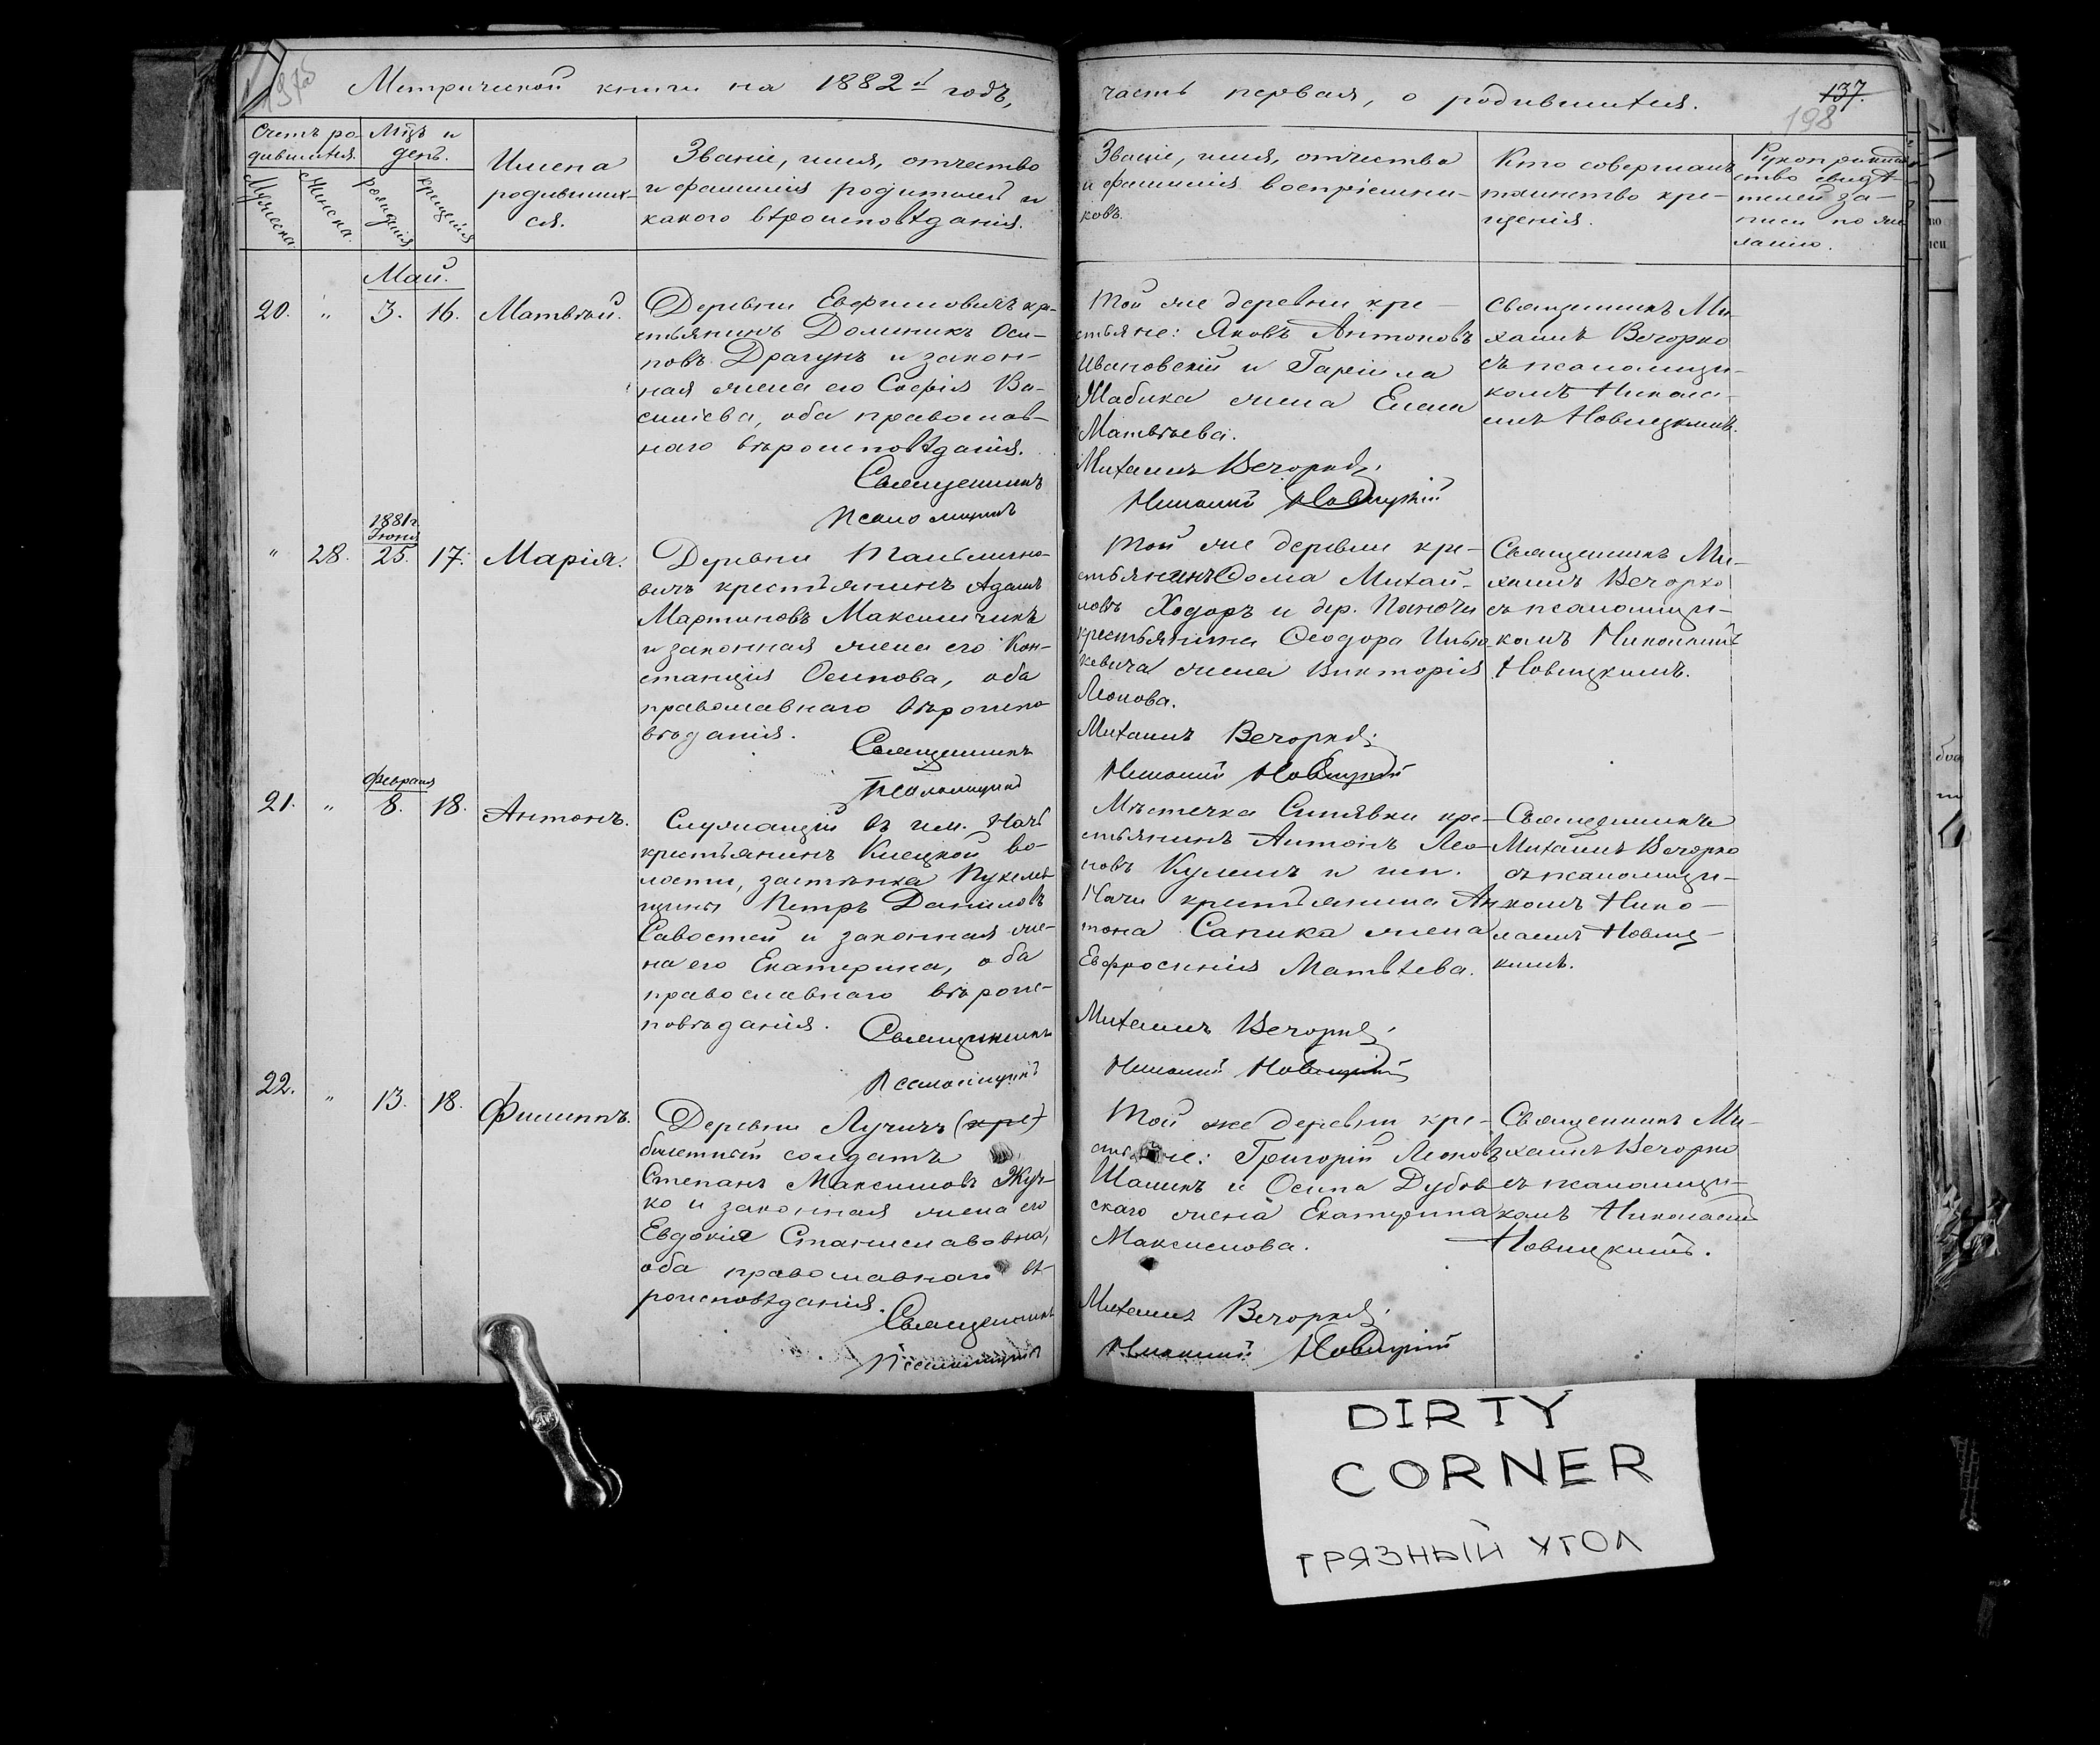 Метрической книги на 1882й годъ,
часть первая, о родившихся.
137.
198
Счетъ ро-
дившихся.
Мужеска.
Женска.
Мцъ и
день.
рожденія
крещенія
Имена
родивших-
ся.
Званіе, имя, отчество
и фамилія родителей и
какого вѣроисповѣданія.
Званіе, имя, отчество
и фамилія воспріемни-
ковъ.
Кто совершалъ
таинство кре-
щенія.
Рукоприклад-
ство свидѣ-
телей за-
писи по же-
ланію.
Май.
20. " 3. 16. Матвѣй.
Деревни Евфимовичъ кре-
стьянинъ Доминикъ Оси-
повъ Драгунъ и закон-
ная жена его Софія Ва-
сильева, оба православ-
наго вѣроисповѣданія.
Священникъ
Псаломщикъ
Той же деревни кре-
стьяне: Яковъ Антоновъ
Ивановскій и Гаріила
Жабика жена Елена
Матвѣева.
Михаилъ Вечорко;
Николай Новицкій
Священникъ Ми-
хаилъ Вечорко
съ псаломщи-
комъ Никола-
емъ Новицкимъ.
1881г.
Іюня
" 28. 25. 17. Марія.
Деревни
вичъ крестьянинъ Адамъ
Мартиновъ Максимчикъ
и законная жена его Кон-
станція Осипова, оба
православнаго вѣроиспо-
вѣданія.
Священникъ
Псаломщикъ
Той же деревни кре-
стьянинъ Фома Михай-
ловъ Ходоръ и дер. Панючи
крестьянина Ѳеодора Илью-
кевича жена Викторія
Леонова.
Михаилъ Вечорко;
Николай Новицкій
Священникъ Ми-
хаилъ Вечорко
съ псаломщи-
комъ Николаемъ
Новицкимъ.
Февраля
21. " 8. 18. Антонъ.
Служащій въ им. Начѣ
крестьянинъ Клецкой во-
лости, застѣнка
щины Петръ Даниловъ
Савостей и законная же-
на его Екатерина, оба
православнаго вѣроис-
повѣданія.
Священникъ
Псаломщикъ
Мѣстечка Синявки кре-
стьянинъ Антонъ Лео-
новъ Кулешъ и им.
Начи крестьянина Ан-
тона Сапика жена
Евфросинія Матвѣева.
Михаилъ Вечорко;
Николай Новицкій
Священникъ
Михаилъ Вечорко
съ псаломщи-
комъ Нико-
лаемъ Новиц-
кимъ.
22. " 13. 18. Филиппъ.
Деревни Лучичъ (кре)
билетный солдатъ
Степанъ Максимовъ Жуч-
ко и законная жена его
Евдокія Станиславовна,
оба православнаго вѣ-
роисповѣданія.
Священникъ
Псаломщикъ
Той же деревни кре-
стьяне: Григорій Леоновъ
Шашкъ и Осипа Дубов-
скаго жена Екатерина
Максимова.
Михаилъ Вечорко;
Николай Новицкій
Священникъ Ми-
хаилъ Вечорко
съ псаломщи-
комъ Николаемъ
Новицкимъ.
DIRTY
CORNER
ГРЯЗНЫЙ УГОЛ